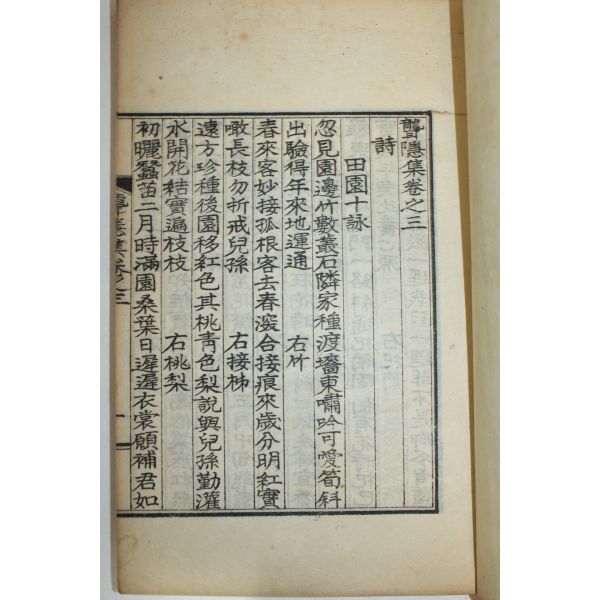 聾隱集卷之三
詩
田園十詠
忽見園邊竹數叢石隣家種渡墻東嘯吟可愛筍斜
出驗得年來地運通　右竹
春來客妙接孤根客去春深合接痕來歲分明紅實
噉長枝勿折戒兒孫　右接柹
遠方珍種後園移紅色其桃青色梨說與兒孫勤灌
水開花結實遍枝枝　右桃梨
初曬蠶苗二月時滿園桑葉日遲遲衣裳願補君如
聾隱集卷之三